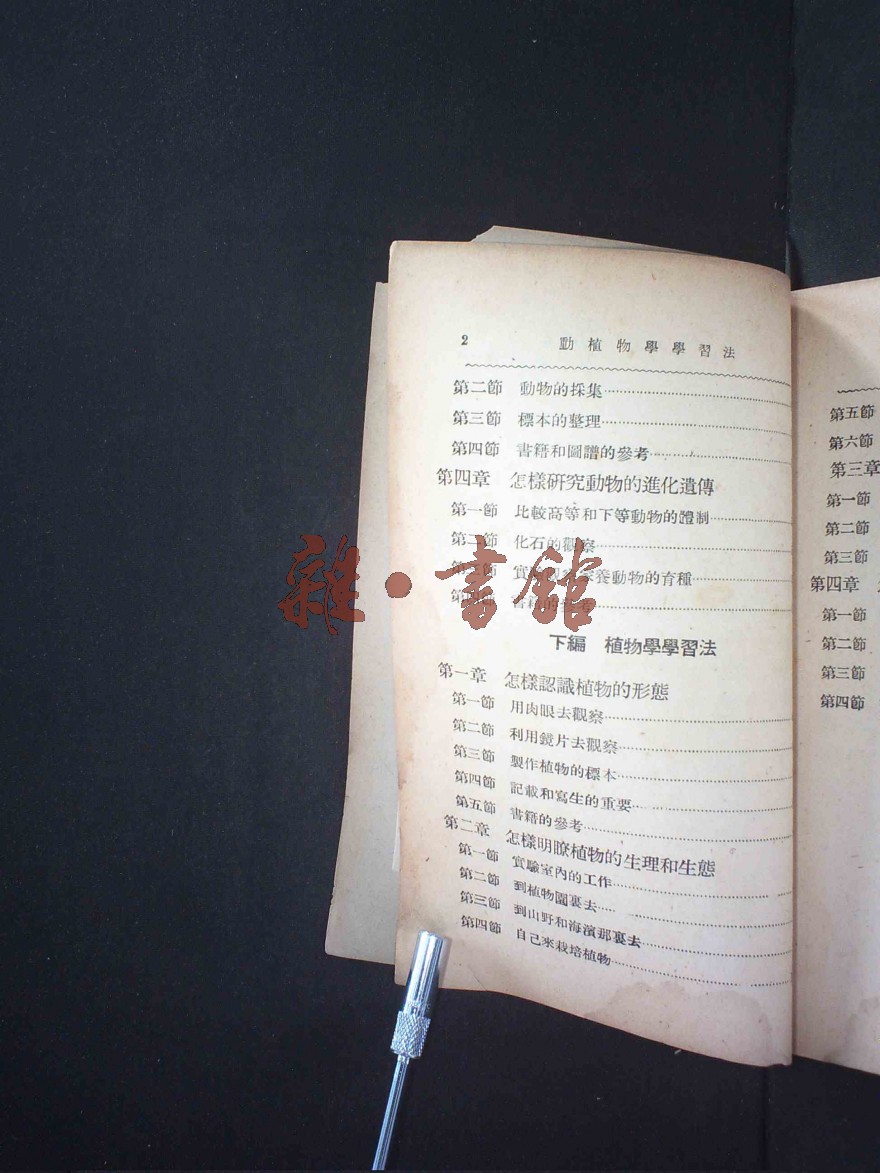 2 動植物學學習法
第二節 動物的採集
第三節 標本的整理
第四節 書籍和圖譜的參考
第四章 怎樣研究動物的進化遺傳
第一節 比較高等和下等動物的體制
第二節 化石的觀察
第三節 養動物的育種
第四節 書籍的參考
下編 植物學學習法
第一章 怎樣認識植物的形態
第一節 用肉眼去觀察
第二節 利用鏡片去觀察
第三節 製作植物的標本
第四節 記載和寫生的重要
第五節 書籍的參考
第二章 怎樣明瞭植物的生理和生態
第一節 實驗室內的工作
第二節 到植物園裏去
第三節 到山野和海濱那裏去
第四節 自己來栽培植物
第五節
第六節
第三章
第一節
第二節
第三節
第四章
第一節
第二節
第三節
第四節
雜·書館